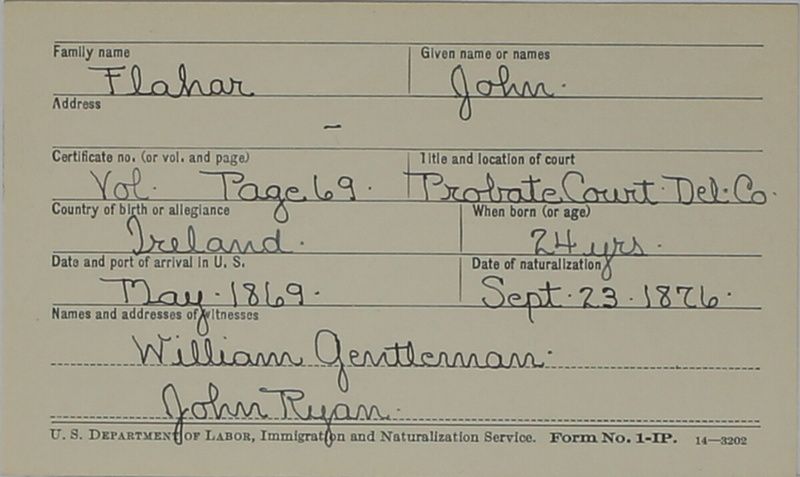 Family name Given name or names
Flahar John.
Address
–
Certificate no. (or vol. and page) Title and location of court
Vol. Page 69. Probate Court. Del. Co.
Country of birth or allegiance When born (or age)
Ireland. 24 yrs.
Date and port of arrival in U. S. Date of naturalization
May. 1869. Sept. 23. 1876.
Names and addresses of witnesses
William Gentleman.
John Ryan.
U. S. DEPARTMENT OF LABOR, Immigration and Naturalization Service. Form No. 1-IP. 14—3202